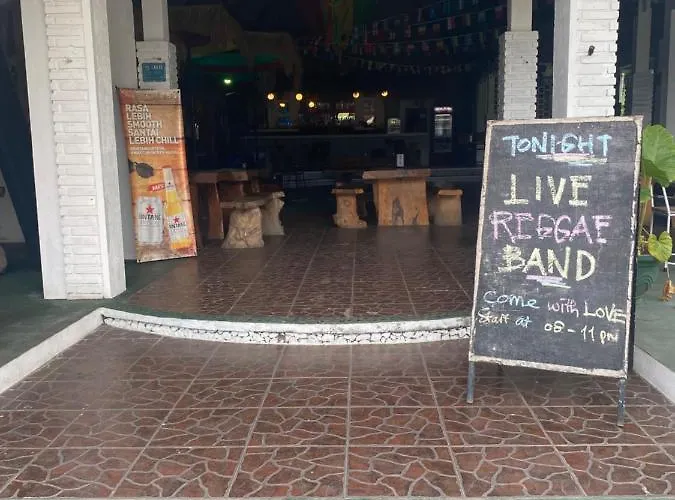 RASA
LEBIH
SMOOTH
SANTAI
LEBIH CHILL
TONIGHT
LIVE
REGGAE
BAND
Come with LOVE
Start at 08-11 PM